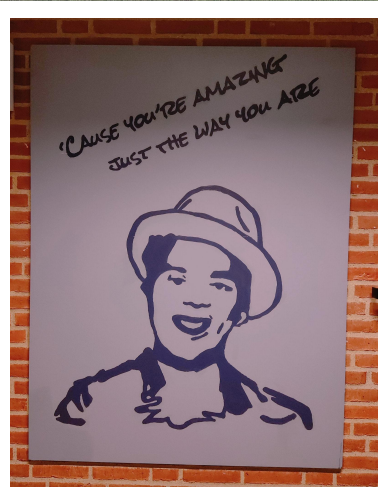 'CAUSE YOU'RE AMAZING
JUST THE WAY YOU ARE